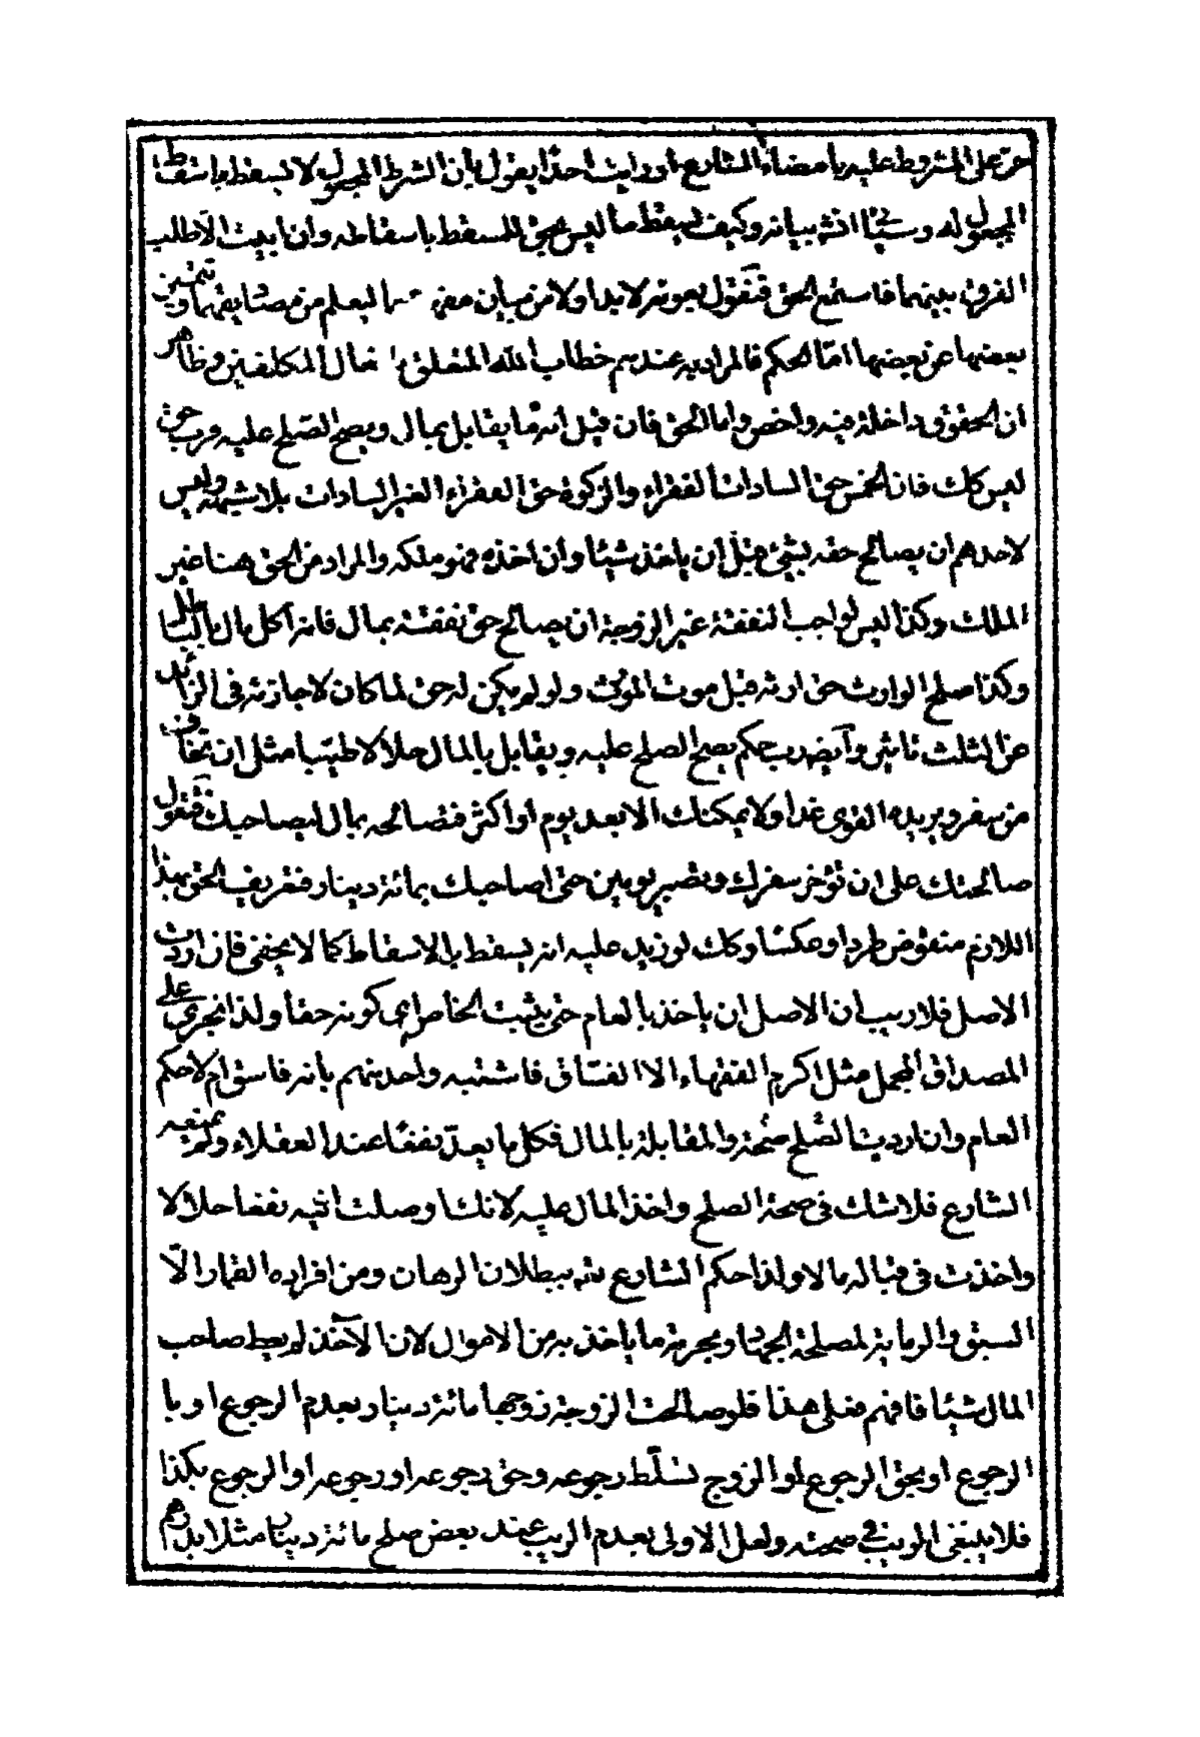 حق على المشروط عليه بامضاء الشارع اورايت احدا يقول بان الشرط المجهول لا يسقط باسقاط
المجعول له وسيأتي انشاء بيانه وكيف يسقط ما ليس بحق للمسقط باسقاطه وان ابيت الا طلب
الفرق بينهما فاستمع الحق فنقول بعونه لابد اولا من بيان معنى ليعلم من مصاديقهما وتميز
بعضها عن بعضها اما الحكم فالمراد به عندهم خطاب الله المتعلق بافعال المكلفين وظاهر
ان الحقوق داخلة فيه واخص واما الحق فان قيل انه ما يقابل بمال ويصح الصلح عليه فرب حق
ليس كك فان الخمس حق السادات الفقراء والزكوة حق الفقراء الغير السادات بلا شبهة وليس
لاحدهم ان يصالح حقه بشئ قبل ان ياخذ شيئا وان اخذه فهو ملكه والمراد من الحق هنا غير
الملك وكذا ليس لواجب النفقة غير الزوجة ان يصالح حق نفقته بمال فانه اكل مال بالباطل
وكذا صلح الوارث حق ارثه قبل موت المورث ولو لم يكن له حق لما كان لاجازته في الزائد
عن الثلث تاثير وآيضا رب حكم يصح الصلح عليه ويقابل بالمال حلالا طيبا مثل ان تخاف
من سفر ويريده القوى غدا ولا يمكنك الا بعد يوم او اكثر فتصالحه بمال ليصاحبك فتقول
صالحتك على ان تؤخر سفرك وتصير يومين حتى اصاحبك بمائة دينار فتعريف الحق بهذا
اللازم منقوض طردا وعكسا وكك لو زيد عليه انه يسقط بالاسقاط كما لا يخفى فان اردت
الاصل فلا ريب ان الاصل ان ياخذ بالعام حتى يثبت الخاص اي كونه حقا ولذا نجري على
المصداق المجمل مثل اكرم الفقهاء الا الفساق فاشتبه واحد منهم بانه فاسق ام لا حكم
العام وان اردت الصلح صحة والمقابلة بالمال فكل ما يعد نفعا عند العقلاء ولم يمنعه
الشارع فلا شك في صحة الصلح واخذ المال عليه لانك اوصلت اليه نفعا حلالا
واخذت في قباله مالا ولذا حكم الشارع ببطلان الرهان ومن افراده القمار الا
السبق والرماية لمصلحة الجهاد وبحرمة ما ياخذ به من الاموال لان الآخذ لم يعط صاحب
المال شيئا فافهم فعلى هذا فلو صالحت الزوجة زوجها مائة دينار بعدم الرجوع او با
الرجوع او بحق الرجوع لو الزوج تسلط رجوعه وحق رجوعه او رجوعه او الرجوع بكذا
فلا ينبغي الريب في صحته ولعل الاولى بعدم الريب عند بعض صلح مائة دينار مثلا بدرهم